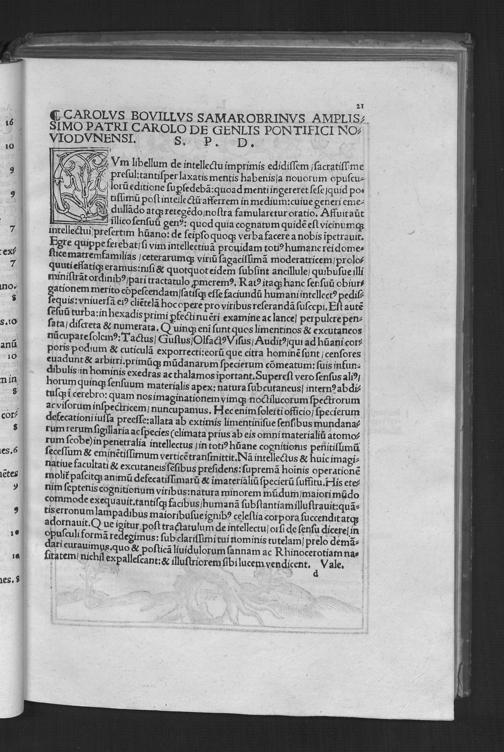 21
¶ CAROLVS BOVILLVS SAMAROBRINVS AMPLIS⸗
SIMO PATRI CAROLO DE GENLIS PONTIFICI NO⸗
VIODVNENSI. S. P. D.
CVm libellum de intellectu imprimis edidissem /sacratissime
presul: tantisper laxatis mentis habenis/a nouorum opuscu⸗
lorū editione supsedebā: quoad menti ingereret sese/quid po⸗
tissimū post intellectū afferrem in medium: cuiue generi eme⸗
dullādo atqꝫ retegēdo/nostra famularetur oratio. Affuit aūt
illico sensuū genꝰ: quod quia cognatum quidē est vicinumqꝫ
intellectui presertim hūano: de seipso quoqꝫ verba facere a nobis īpetrauit.
Egre quippe ferebat/si vim intellectiuā prouidam toti humane rei dome⸗
stice matremfamilias /ceterarumqꝫ viriū sagacissimā moderatricem/prolo⸗
quuti effatiqꝫ eramus: nisi & quotquot eidem subsint ancillule/quibusue illi
ministrāt ordinibꝰ/pari tractatulo promerem.
gationem merito cōpescendam/satisqꝫ esse faciundū humani intellectꝰ pedis⸗
sequis: vniuersā eiꝰ clientelā hoc opere pro viribus referandā suscepi. Est autē
sensuū turba: in hexadis primi pfecti nūeri examine ac lance/ perpulcre pen⸗
sata/discreta & numerata. Quinqꝫ eni sunt quos limentinos & excutaneos
nūcupare solemꝰ: Tactus/ Gustus/OlfactꝰVisus/Auditꝰ/qui ad hūani cor⸗
poris podium & cuticulā exporrecti: eorū que citra hominē sunt/censores
euadunt & arbitri, primūqꝫ mūdanarum specierum cōmeatum: suis infun⸗
dibulis in hominis exedras ac thalamos iportant. Superest vero sensus aliꝰ/
horum quinqꝫ sensuum materialis apex: natura subcutaneus/ internꝰ abdi⸗
tusqꝫ ī cerebro: quam nos imaginationem vimqꝫ noctilucorum spectrorum
ac visorum inspectricem/ nuncupamus. Hec enim solerti officio/specierum
defecationi iussa preesse: allata ab extimis limentinisue sensibus mundana⸗
rum rerum sigillaria ac species (climata prius ab eis omni materialiū atomo⸗
rum scobe) in penetralia intellectus /in toti hūane cognitionis penitissimū
secessum & eminētissimum verticē transmittit. Nā intellectus & huic imagi⸗
natiue facultati & excutaneis sēsibus presidens: supremā hoīnis operationē
molit pascitqꝫ animū defecatissimarū & imaterialiū specierū suffitu. His ete⸗
nim septenis cognitionum viribus: natura minorem mūdum/maiori mūdo
commode exequauit. tantisqꝫ facibus/humanā substantiam illustrauit: quā⸗
tis erronum lampadibus maioribusue ignibꝰ celestia corpora succendit atqꝫ
adornauit. Que igitur post tractatulum de intellectu /orsi de sensu dicere/in
opusculi formā redegimus: sub clarissimi tui nominis tutelam/ prelo demā⸗
dari curauimus. quo & postica liuidulorum sannam ac Rhinocerotiam na⸗
sitatem/nichil expallescant: & illustriorem sibi lucem vendicent. Vale.
d